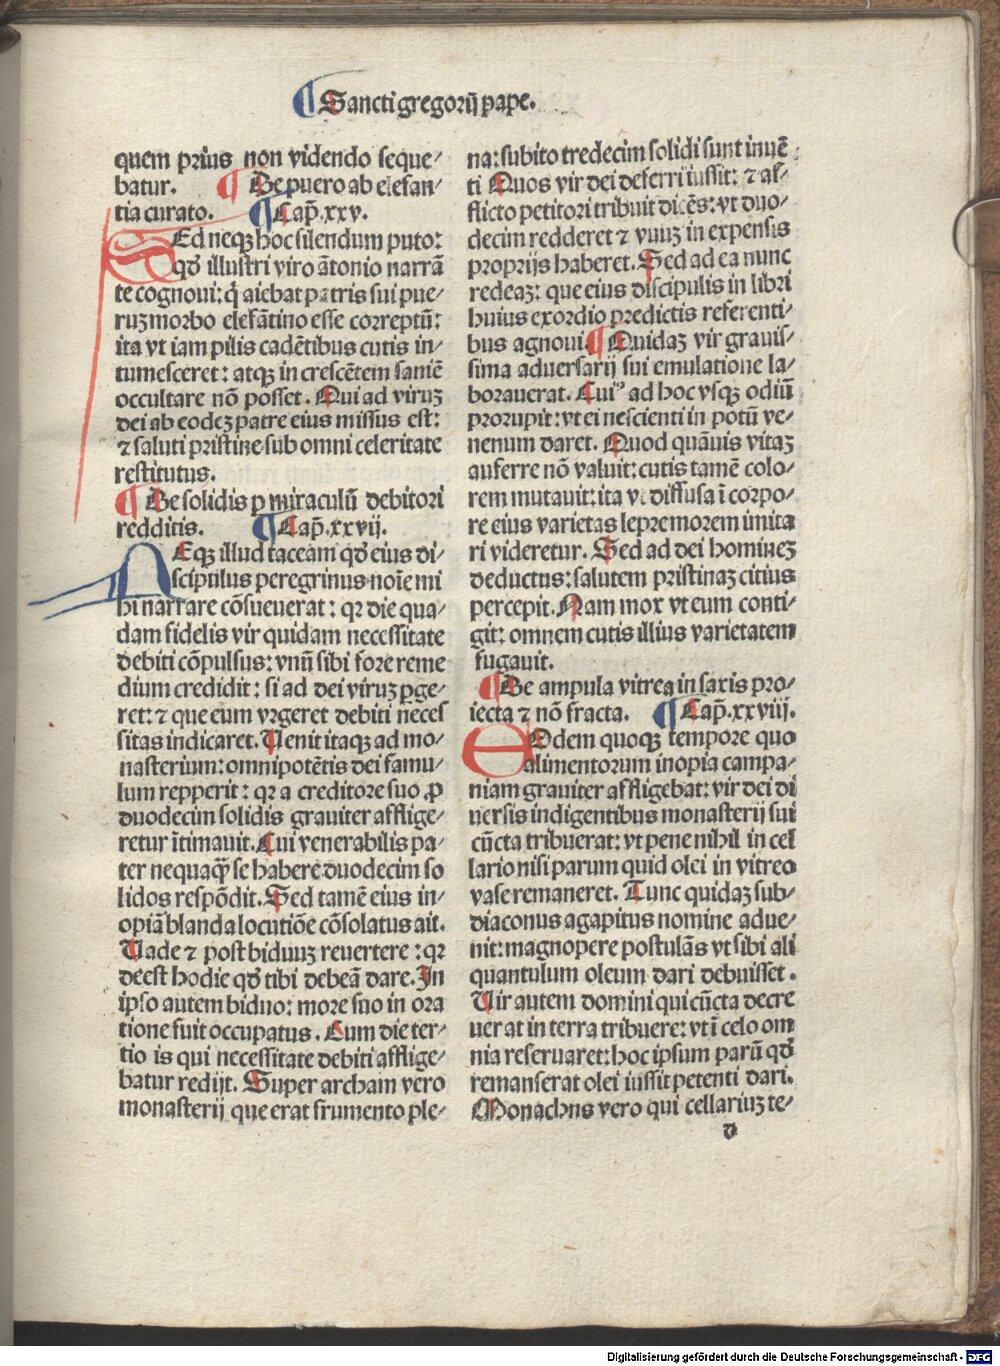 ¶ Sancti gregorij pape.
quem prius non videndo seque⸗
batur. ¶ De puero ab elefan⸗
tia curato. ¶ Cap̄.xxv.
SEd neqꝫ hoc silendum puto:
qđ illustri viro ātonio narrā
te cognoui: q̄ aiebat patris sui pue⸗
ruꝫ morbo elefātino esse correptū:
ita vt iam pilis cadētibus cutis in⸗
tumesceret: atqꝫ in crescētem saniē
occultare nō posset. Qui ad viruꝫ
dei ab eodeꝫ patre eius missus est:
⁊ saluti pristine sub omni celeritate
restitutus.
¶ De solidis ꝑ miraculū debitori
redditis. ¶ Cap̄.xxvij.
NEqꝫ illud taceam qđ eius di⸗
scipulus peregrinus noīe mi
hi narrare cōsueuerat: qꝛ die qua⸗
dam fidelis vir quidam necessitate
debiti cōpulsus: vnū sibi fore reme
dium credidit: si ad dei viruꝫ ꝑge⸗
ret: ⁊ que eum vrgeret debiti neces
sitas indicaret. Uenit itaqꝫ ad mo⸗
nasterium: omnipotētis dei famu⸗
lum repperit: qꝛ a creditore suo ꝓ
duodecim solidis grauiter afflige⸗
retur ītimauit. Cui venerabilis pa⸗
ter nequaq̄ se habere duodecim so
lidos respōdit. Sed tamē eius in⸗
opiā blanda locutiōe cōsolatus ait.
Uade ⁊ post biduuꝫ reuertere: qꝛ
deest hodie qđ tibi debeā dare. In
ipso autem biduo: more suo in ora
tione fuit occupatus. Cum die ter⸗
tio is qui necessitate debiti afflige⸗
batur redijt. Super archam vero
monasterij que erat frumento ple⸗
na: subito tredecim solidi sunt inuē
ti Quos vir dei deferri iussit: ⁊ af⸗
flicto petitori tribuit dicēs: vt duo⸗
decim redderet ⁊ vnuꝫ in expensis
proprijs haberet. Sed ad ea nunc
redeaꝫ: que eius discipulis in libri
huius exordio predictis referenti⸗
bus agnoui. ¶ Quidaꝫ vir grauis⸗
sima aduersarij sui emulatione la⸗
borauerat. Cuiꝰ ad hoc vsqꝫ odiū
prorupit: vt ei nescienti in potū ve⸗
nenum daret. Quod quāuis vitaꝫ
auferre nō valuit: cutis tamē colo⸗
rem mutauit: ita vt diffusa ī corpo⸗
re eius varietas lepre morem imita
ri videretur. Sed ad dei homineꝫ
deductus: salutem pristinaꝫ citius
percepit. Nam mox vt eum conti⸗
git: omnem cutis illius varietatem
fugauit.
¶ De ampula vitrea in saxis pro⸗
iecta ⁊ nō fracta. ¶ Cap̄.xxviij.
EOdem quoqꝫ tempore quo
alimentorum inopia campa⸗
niam grauiter affligebat: vir dei di
uersis indigentibus monasterij sui
cūcta tribuerat: vt pene nihil in cel
lario nisi parum quid olei in vitreo
vase remaneret. Tunc quidaꝫ sub⸗
diaconus agapitus nomine adue⸗
nit: magnopere postulās vt sibi ali
quantulum oleum dari debuisset.
Uir autem domini qui cūcta decre
uerat in terra tribuere: vt ī celo om
nia reseruaret: hoc ipsum parū qđ
remanserat olei iussit petenti dari.
Monachus vero qui cellariuꝫ te⸗
d
Digitalisierung gefördert durch die Deutsche Forschungsgemeinschaft - DFG